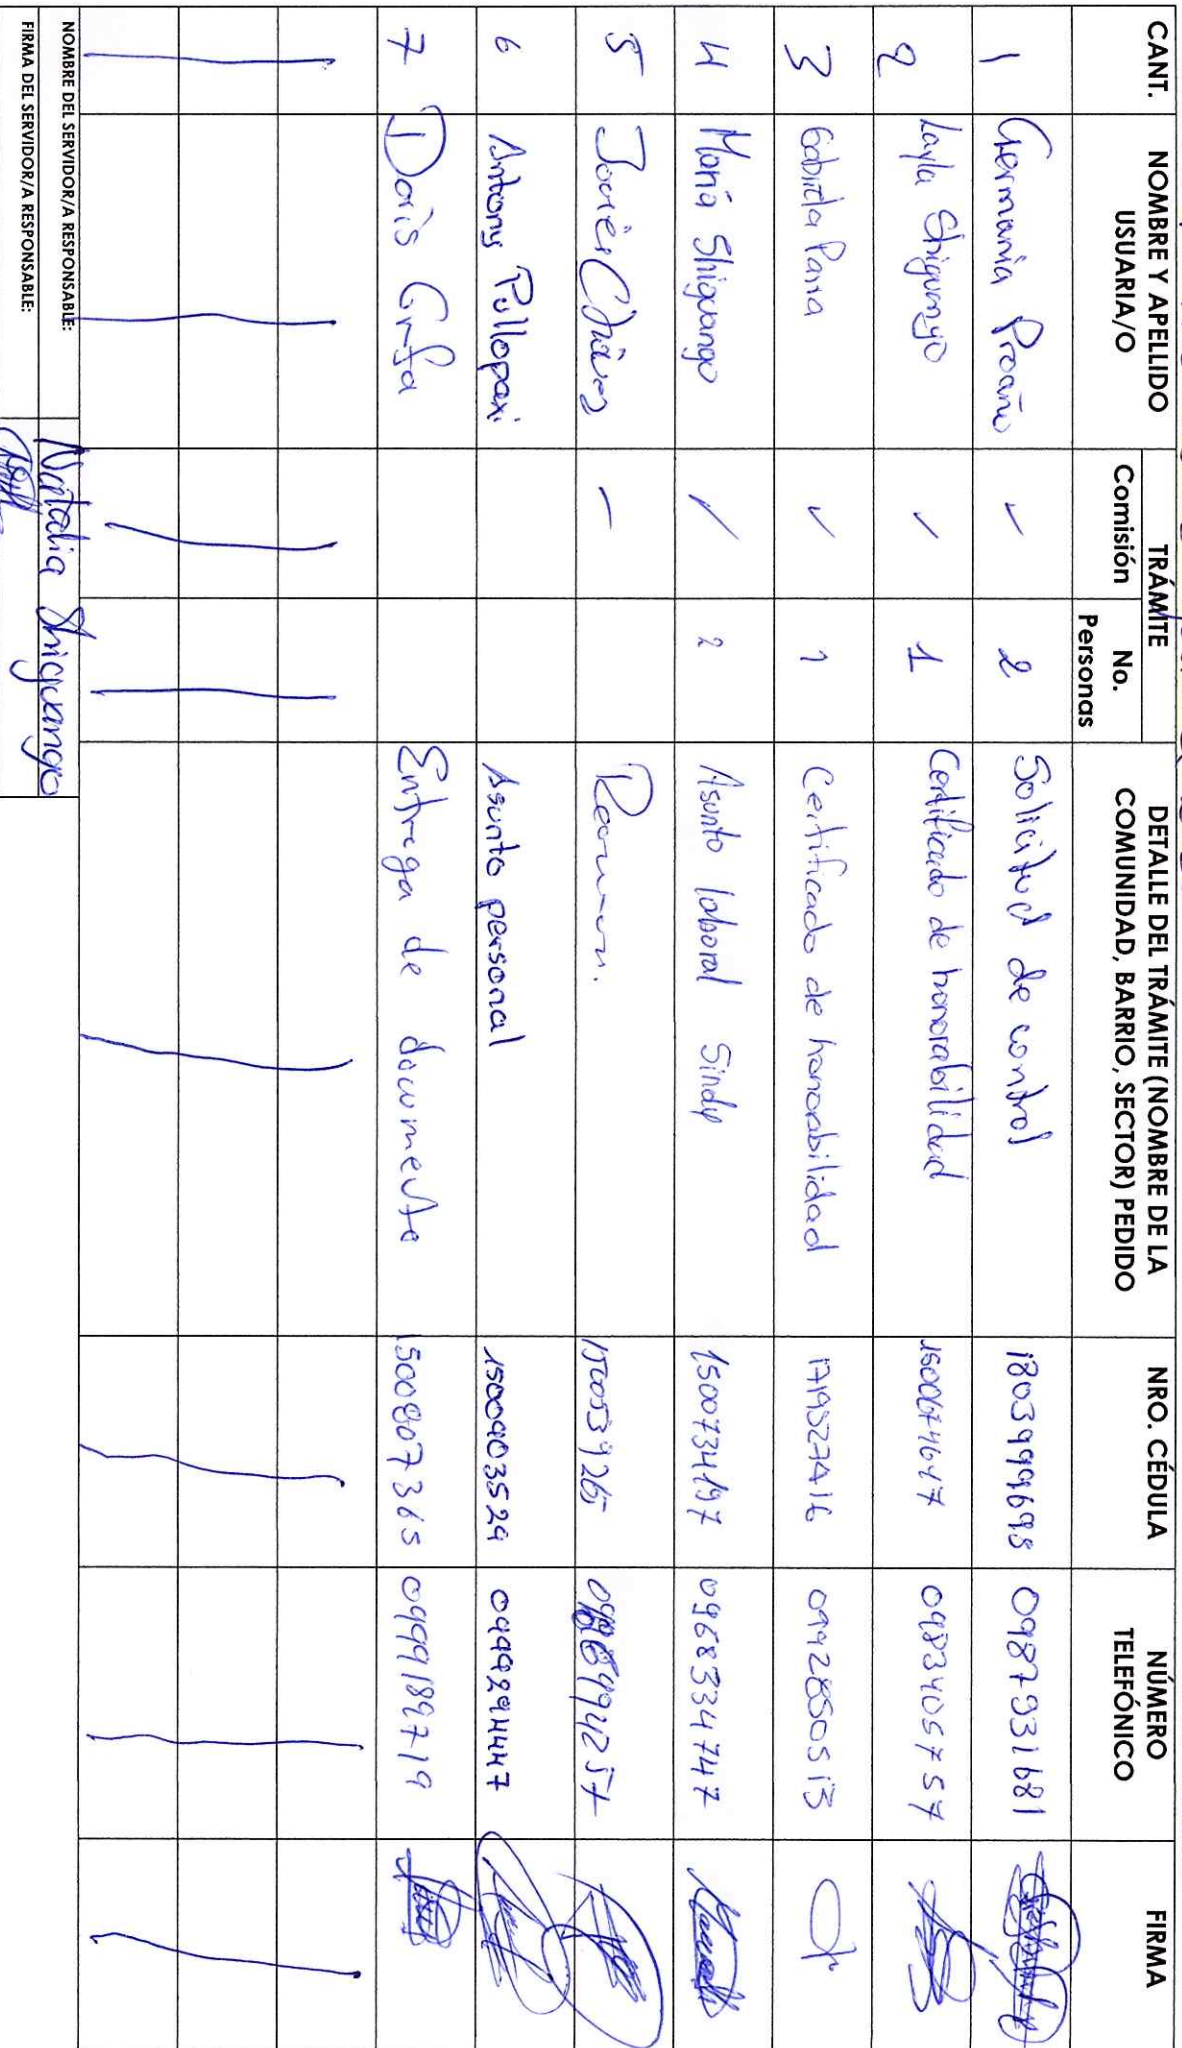 CANT. NOMBRE Y APELLIDO USUARIA/O TRÁMITE Comisión No. Personas DETALLE DEL TRÁMITE (NOMBRE DE LA COMUNIDAD, BARRIO, SECTOR) PEDIDO NRO. CÉDULA NÚMERO TELEFÓNICO FIRMA
1 Germania Proaño ✓ 2 Solicitud de control 1803999698 0987931681
2 Layla Shiguango ✓ 1 Certificado de honorabilidad 1500674647 0983405757
3 Gabriela Parra ✓ 1 Certificado de honorabilidad 1719527416 0992850513
4 María Shiguango / 2 Asunto laboral Sindy 1500734197 0968334747
5 Javier Chávez – Reunión. 1500539265
6 Antony Pullopaxi Asunto personal 1500903529 0999294447
7 Doris Grefa Entrega de documento 1500807365 0999189719
NOMBRE DEL SERVIDOR/A RESPONSABLE: Natalia Shiguango
FIRMA DEL SERVIDOR/A RESPONSABLE: